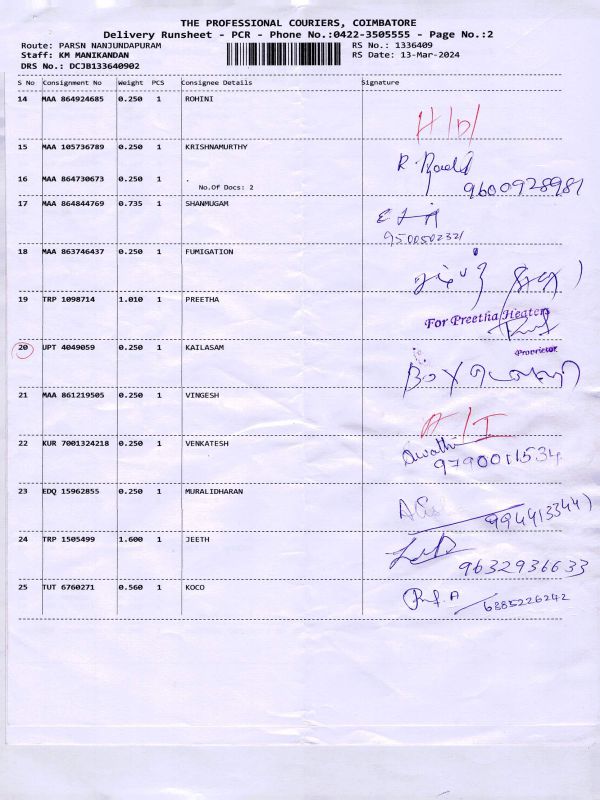 THE PROFESSIONAL COURIERS, COIMBATORE
Delivery Runsheet - PCR - Phone No.:0422-3505555 - Page No.:2
Route: PARSN NANJUNDAPURAM RS No.: 1336409
Staff: KM MANIKANDAN RS Date: 13-Mar-2024
DRS No.: DCJB133640902
S No Consignment No Weight PCS Consignee Details Signature
14 MAA 864924685 0.250 1 ROHINI
H/D/
15 MAA 105736789 0.250 1 KRISHNAMURTHY
16 MAA 864730673 0.250 1 .
No.Of Docs: 2
9600928981
17 MAA 864844769 0.735 1 SHANMUGAM
9500502321
18 MAA 863746437 0.250 1 FUMIGATION
19 TRP 1098714 1.010 1 PREETHA
For Preetha Heaters
Proprietor
20 UPT 4049059 0.250 1 KAILASAM
Box
21 MAA 861219505 0.250 1 VINGESH
22 KUR 7001324218 0.250 1 VENKATESH
9790011534
23 EDQ 15962855 0.250 1 MURALIDHARAN
24 TRP 1505499 1.600 1 JEETH
9632936633
25 TUT 6760271 0.560 1 KOCO
6385226242